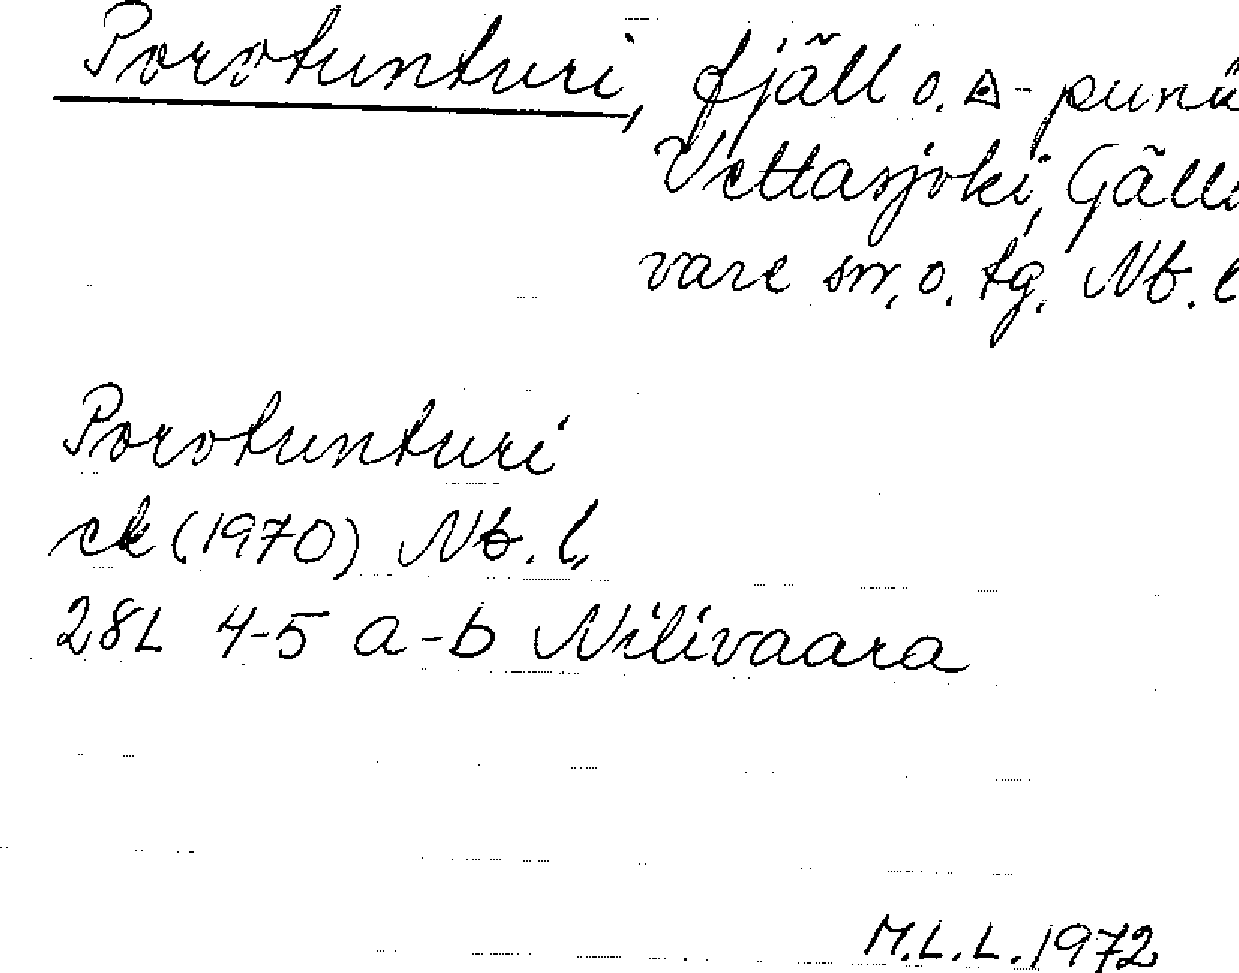 Porotunturi, fjäll o. △-punk
Vettasjoki, Gälli
vare sn, o. tg. Nb. l
Porotunturi
ek (1970) Nb. l,
28L 4-5 a-b Nilivaara
M.L.L. 1972